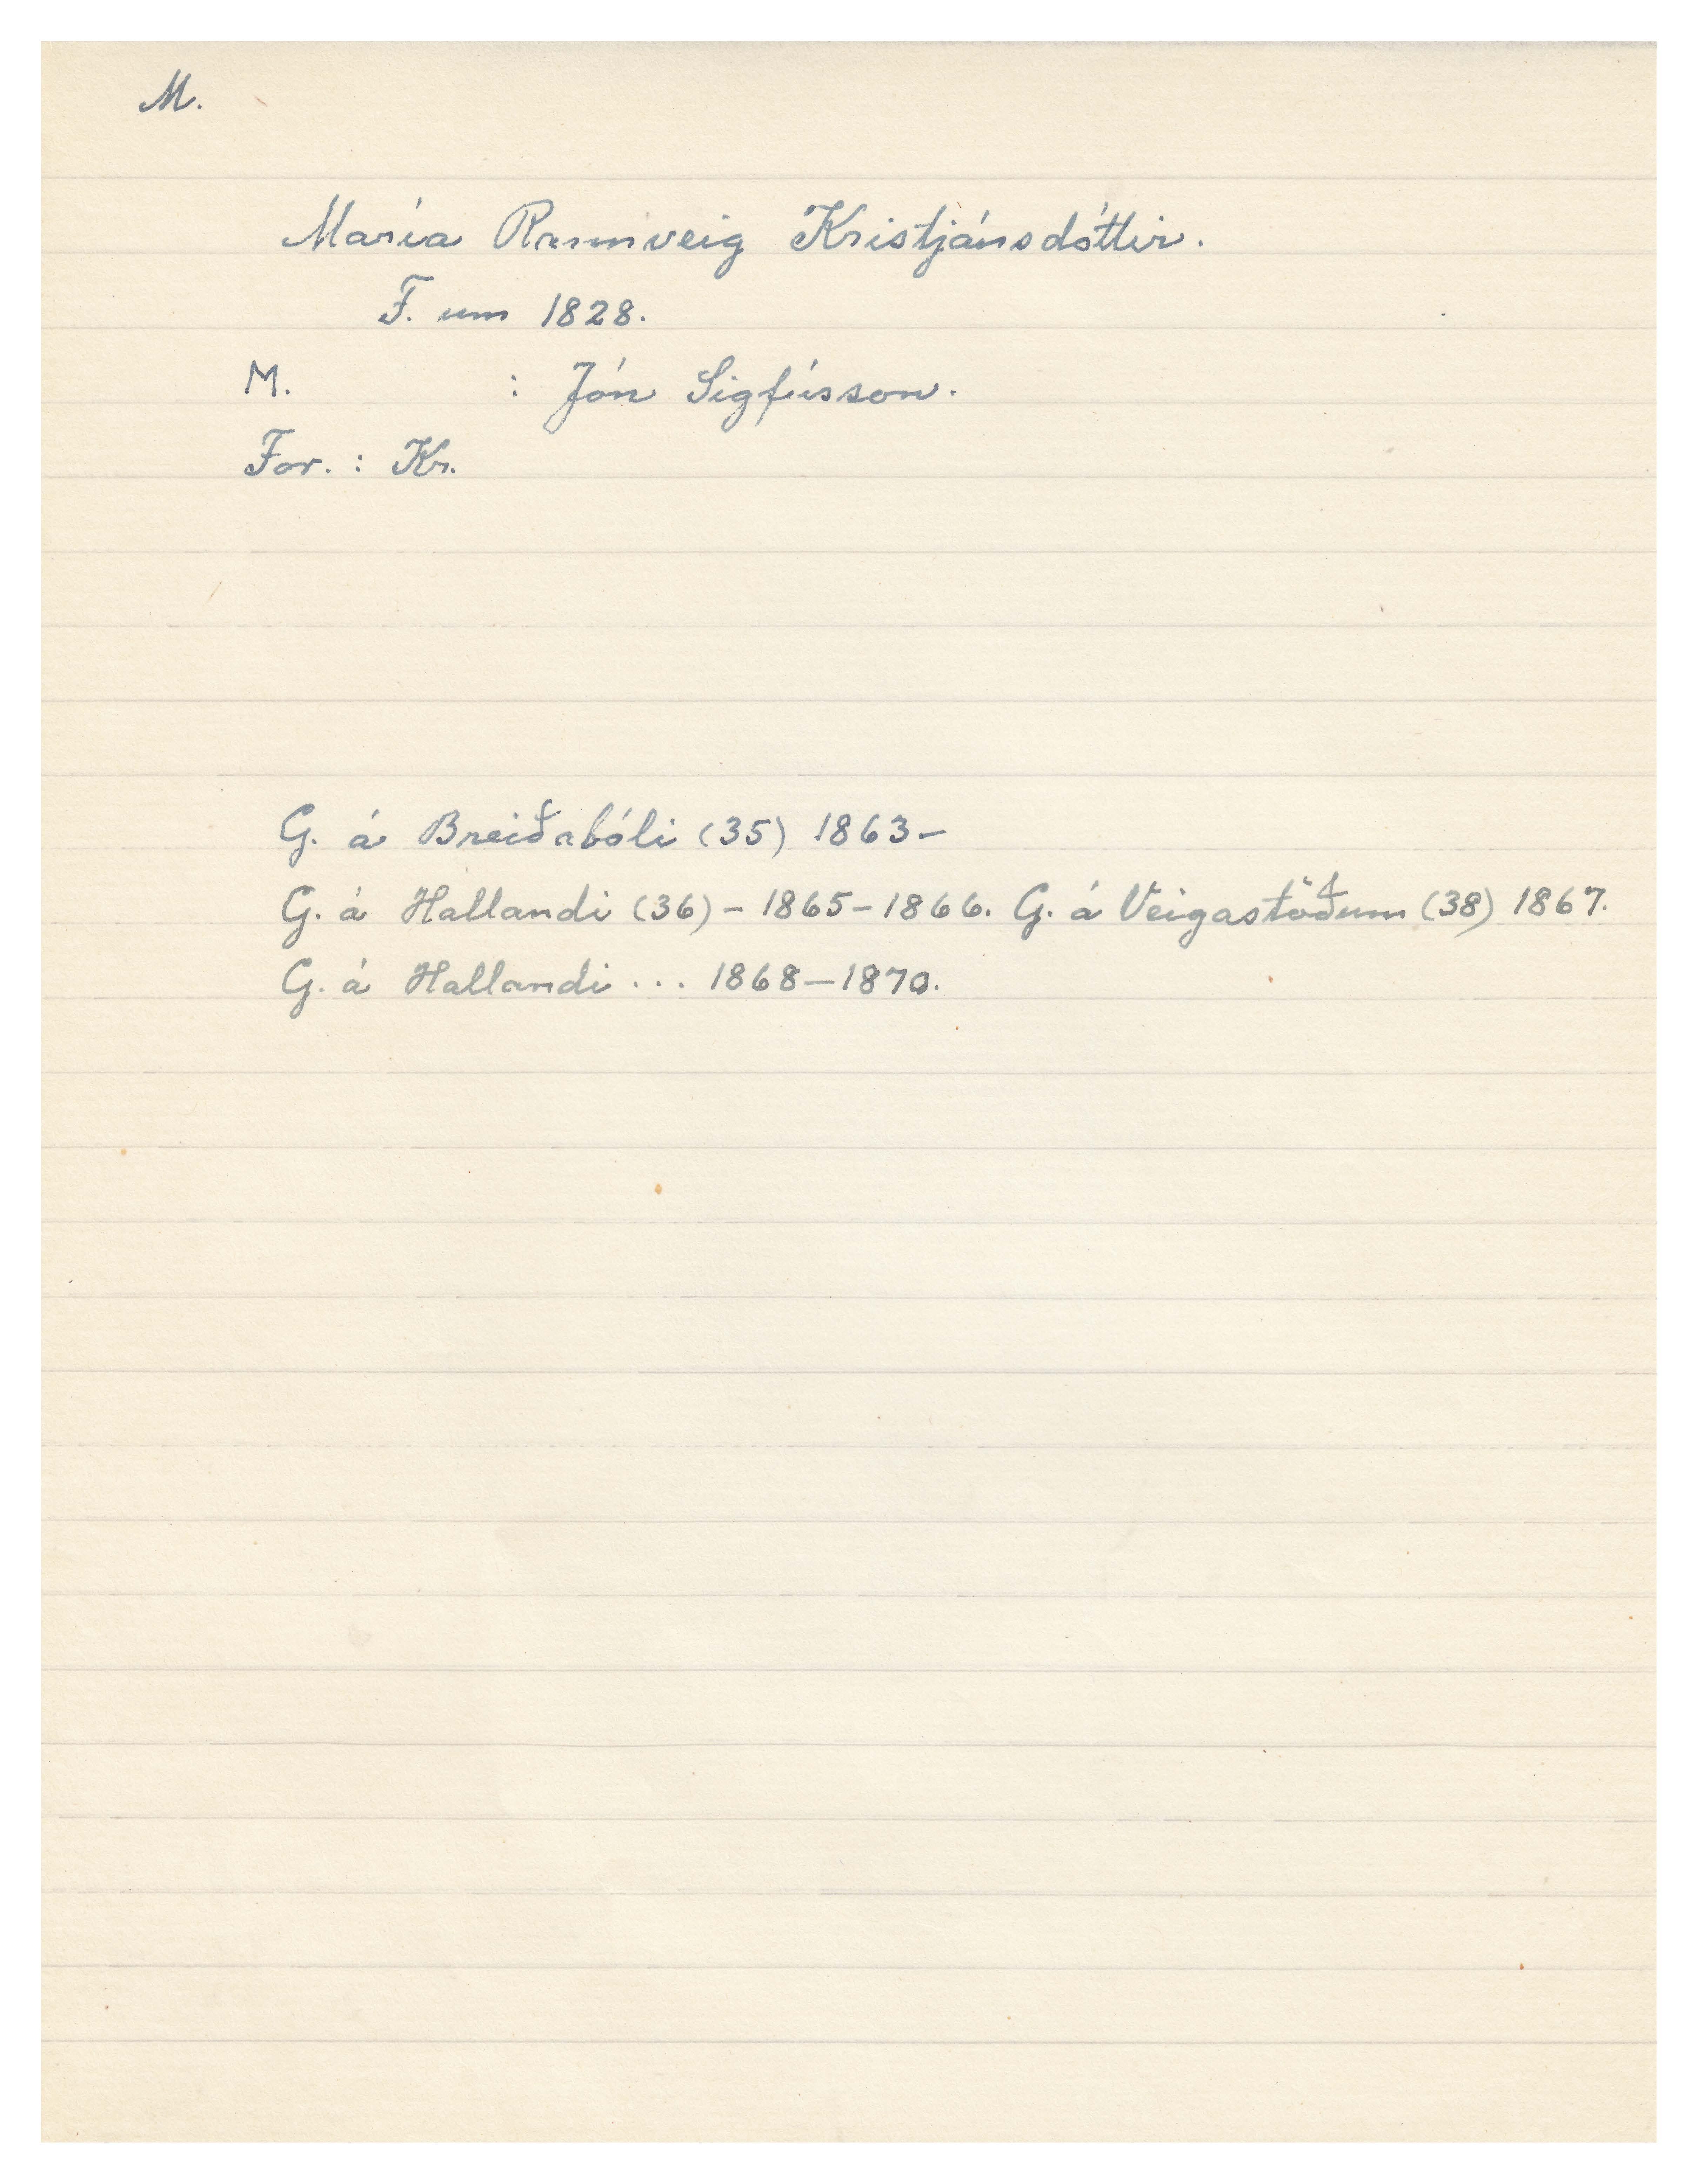 M.
María Rannveig Kristjánsdóttir.
F. um 1828.
M. : Jón Sigfússon.
For. : Kr.
G. á Breiðabóli (35) 1863-
G. á Hallandi (36) - 1865-1866. G. á Veigastöðum (38) 1867.
G. á Hallandi ... 1868-1870.